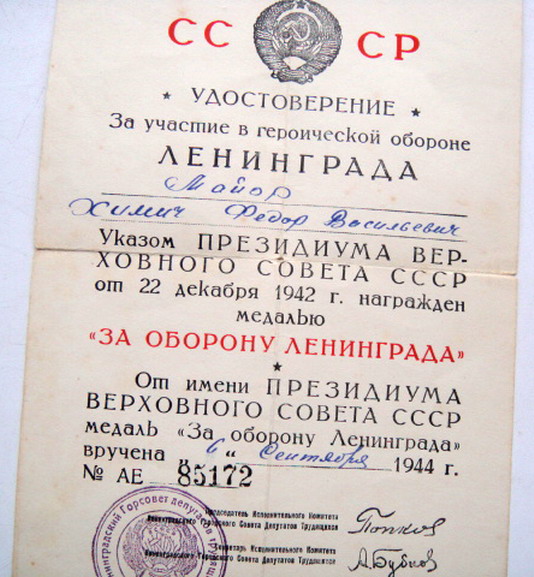 СС СР
УДОСТОВЕРЕНИЕ
За участие в героической обороне
ЛЕНИНГРАДА
Майор
Химич Федор Васильевич
Указом ПРЕЗИДИУМА ВЕР-
ХОВНОГО СОВЕТА СССР
от 22 декабря 1942 г. награжден
медалью
«ЗА ОБОРОНУ ЛЕНИНГРАДА»
От имени ПРЕЗИДИУМА
ВЕРХОВНОГО СОВЕТА СССР
медаль «За оборону Ленинграда»
вручена „6" Сентября 1944 г.
№ АЕ 85172
Председатель Исполнительного Комитета
Ленинградского Городского Совета Депутатов Трудящихся
Попков
Секретарь Исполнительного Комитета
Ленинградского Городского Совета Депутатов Трудящихся
А. Бубнов
Ленинградский Горсовет депутатов